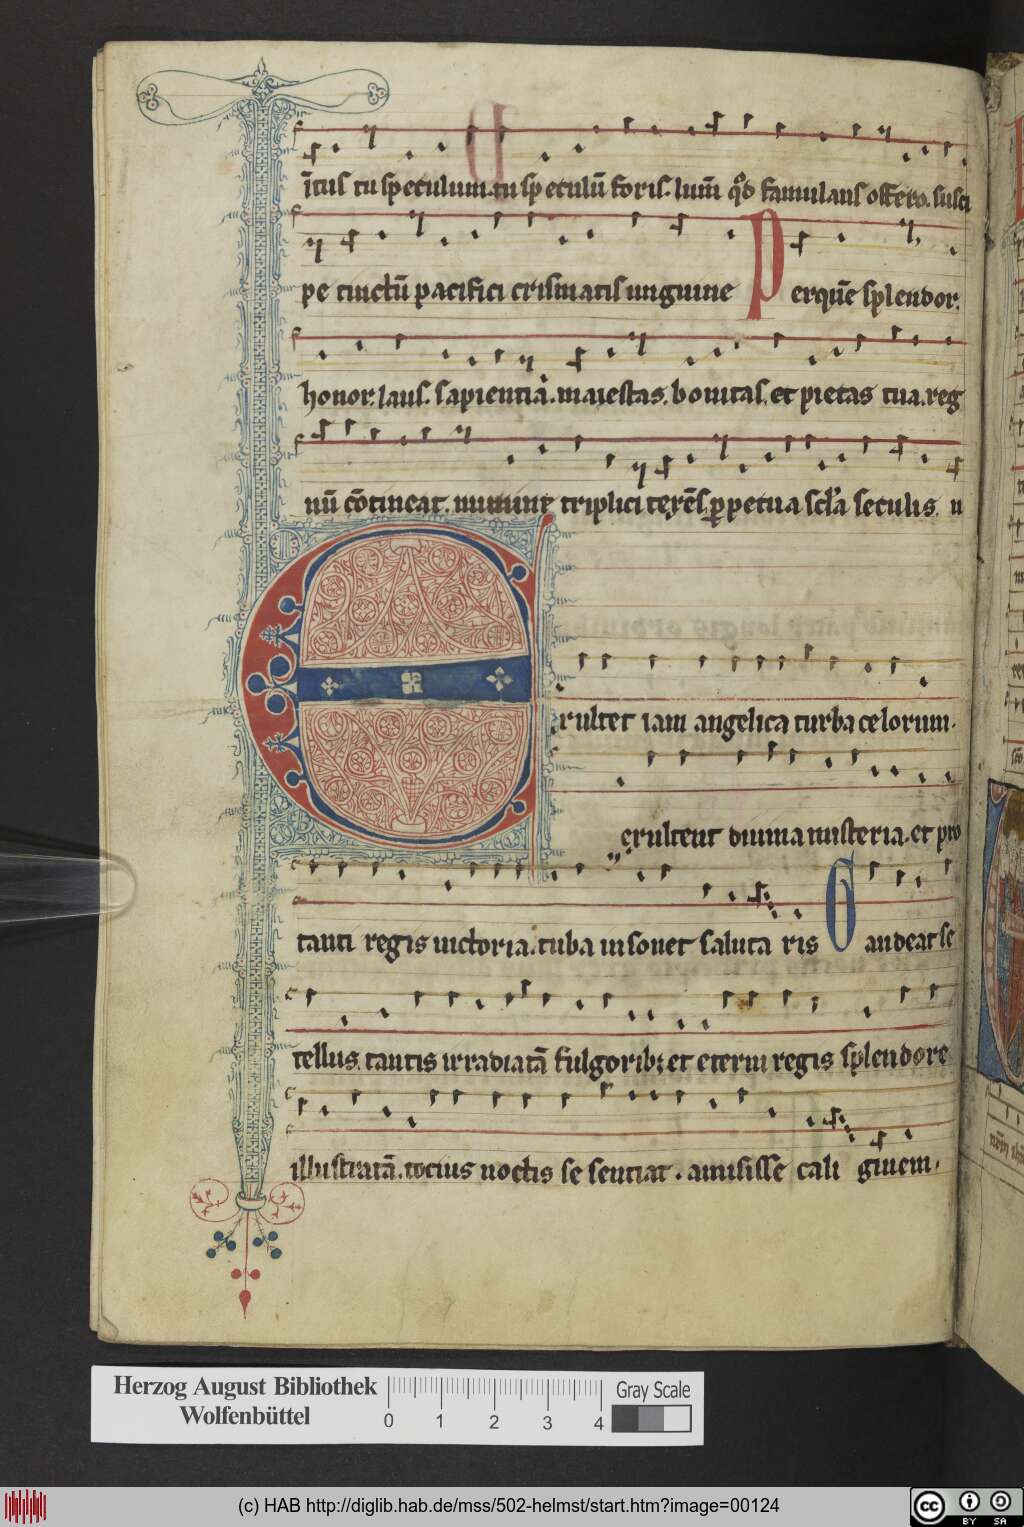 ītus tu speculum. tu speculū foris. lum̄ qd̊ famulans offero. susci
pe tinctū pacifici crismatis unguine Perquē splendor.
honor. laus. sapientia. maiestas. bonitas. et pietas tua. reg
nū cōtineat. triplici ꝑpetua secula seculis. u
Exultet iam angelica turba celorum.
exultent diuina misteria. et pro
tanti regis uictoria. tuba insonet saluta ris Gaudeat se
tellus. tantis irradiatā fulgorib; et eterni regis splendore
illustratā. tocius noctis se sentiat. amisisse cali ginem.
Herzog August Bibliothek
Wolfenbüttel
0 1 2 3 4
Gray Scale
(c) HAB http://diglib.hab.de/mss/502-helmst/start.htm?image=00124
cc BY SA